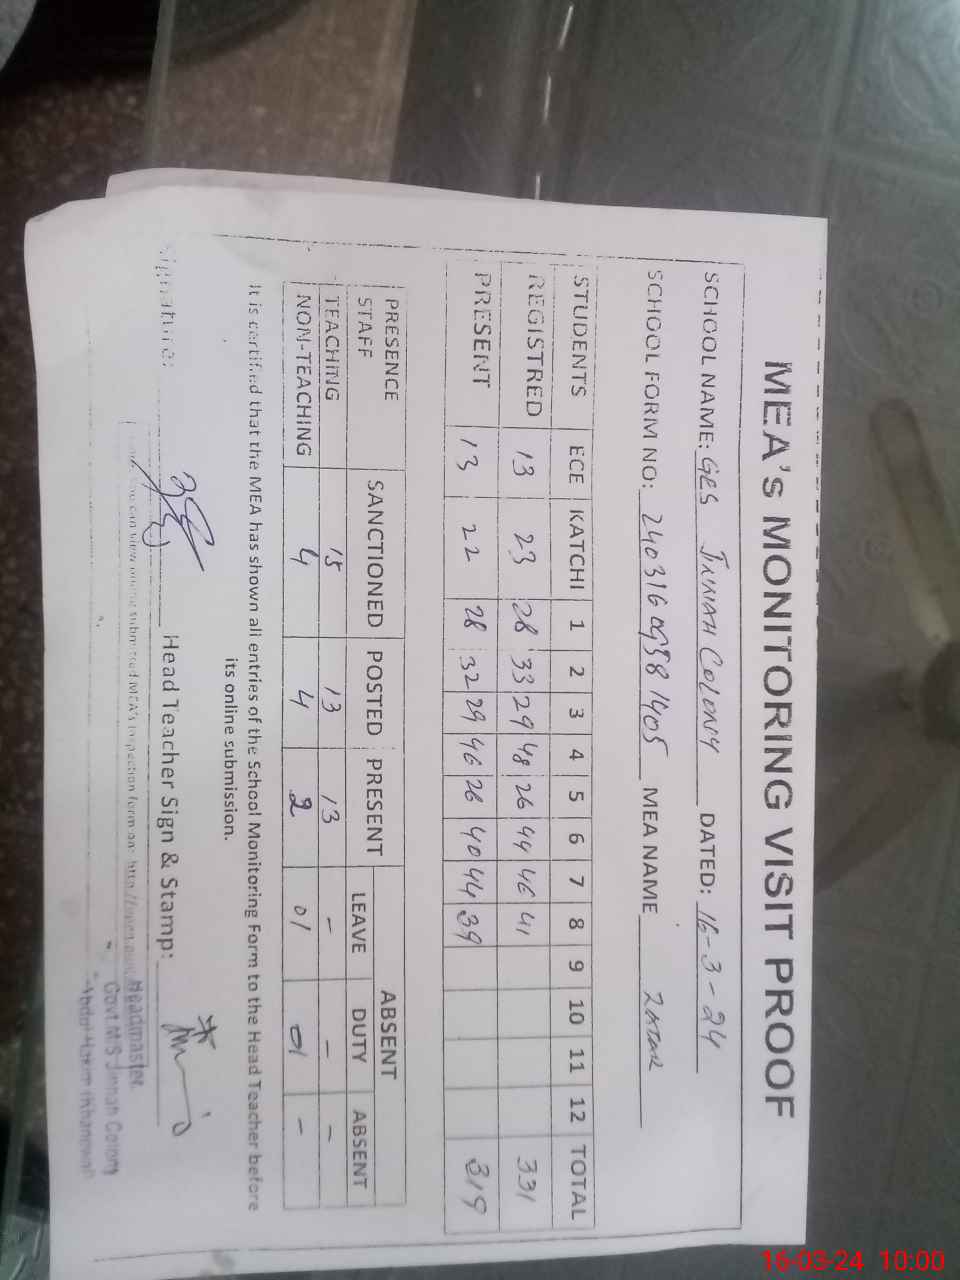 MEA's MONITORING VISIT PROOF
SCHOOL NAME: GES JINNAH COLONY DATED: 16-3-24
SCHOOL FORM NO: MEA NAME
STUDENTS ECE KATCHI 1 2 3 4 5 6 7 8 9 10 11 12 TOTAL
REGISTRED 13 23 28 33 29 48 26 44 46 41 331
PRESENT 13 22 28 32 29 46 26 40 44 39 319
PRESENCE SANCTIONED POSTED PRESENT ABSENT
STAFF LEAVE DUTY ABSENT
TEACHING 15 13 13 - - -
NON-TEACHING 4 4 2 01 01 -
It is certified that the MEA has shown all entries of the School Monitoring Form to the Head Teacher before
its online submission.
Signature: Head Teacher Sign & Stamp:
can view online submitted MEA's inspection form on: http://open.
Headmaster
Govt. M/S Jinnah Colony
Abdul Hakim (Khanewal)
16-03-24 10:00